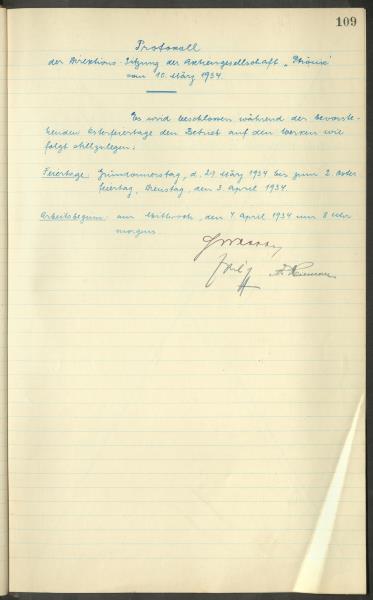 109
Protokoll
der Direktions-Sitzung der Aktiengesellschaft „Phönix"
vom 10. März 1934.
Es wird beschlossen während der bevorste-
henden Osterfeiertage den Betrieb auf den Werken wie
folgt stillzulegen:
Feiertage: Gründonnerstag, d. 29 März 1934 bis zum 2. Oster
feiertag, Dienstag, den 3. April 1934
Arbeitsbeginn: am Mittwoch, den 4. April 1934 um 8 Uhr
morgens